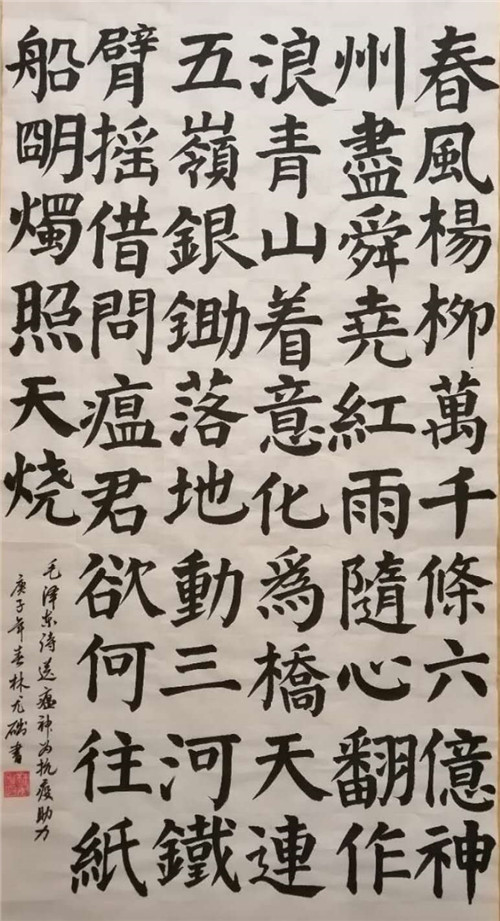 春風楊柳萬千條六億神
州盡舜堯紅雨隨心翻作
浪青山着意化爲橋天連
五嶺銀鋤落地動三河鐵
臂摇借問瘟君欲何往紙
船朙燭照天烧
毛泽东诗送瘟神为抗疫助力
庚子年春林尤書